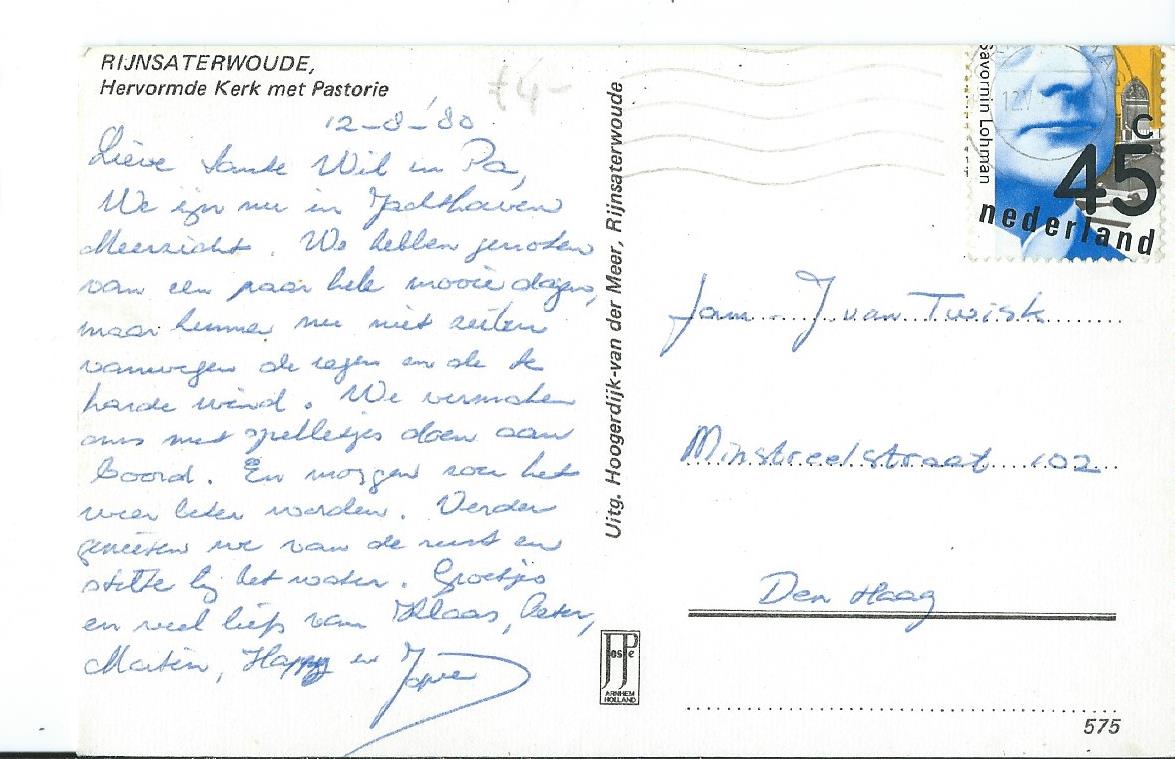 RIJNSATERWOUDE,
Hervormde Kerk met Pastorie
£4-
12-8-'80
Lieve tante Wil en Pa,
We zijn nu in Jachthaven
Meerzicht. We hebben genoten
van een paar hele mooie dagen,
maar kunnen nu niet zeilen
vanwegen de regen en de te
harde wind. We vermaken
ons met spelletjes doen aan
boord. En morgen zou het
weer beter worden. Verder
genieten we van de rust en
stilte bij het water. Groetjes
en veel liefs van Klaas, Peter,
Martin, Happy en
Uitg. Hoogerdijk-van der Meer, Rijnsaterwoude
JosPe
ARNHEM
HOLLAND
Savornin Lohman
45 c
nederland
Fam. J van Twisk
Minstreelstraat 102
Den Haag
575